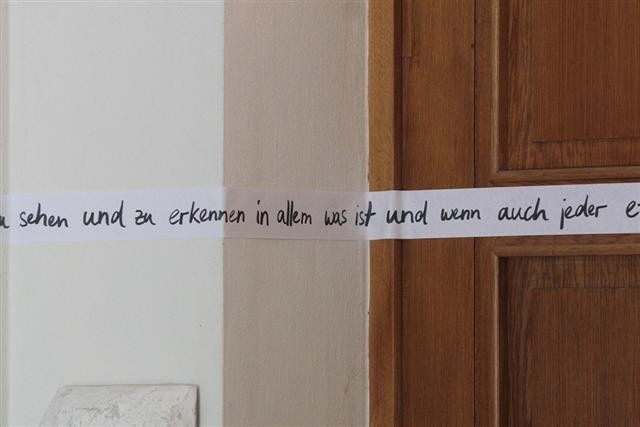 sehen und zu erkennen in allem was ist und wenn auch jeder